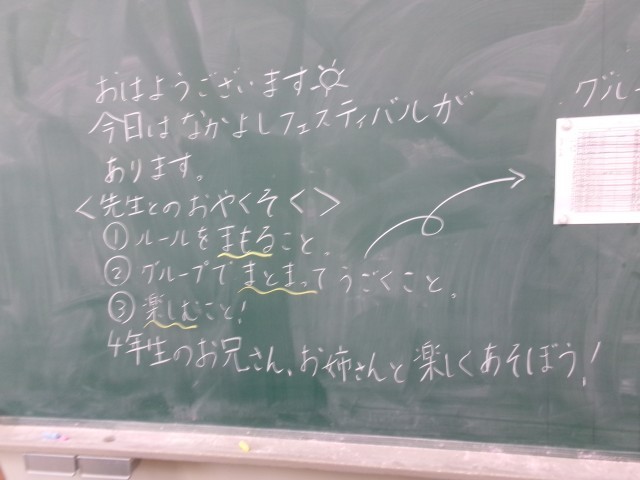 おはようございます
今日はなかよしフェスティバルが
あります。
<先生とのおやくそく>
①ルールをまもること。
②グループでまとまってうごくこと。
③楽しむこと!
4年生のお兄さん、お姉さんと楽しくあそぼう!
グルー